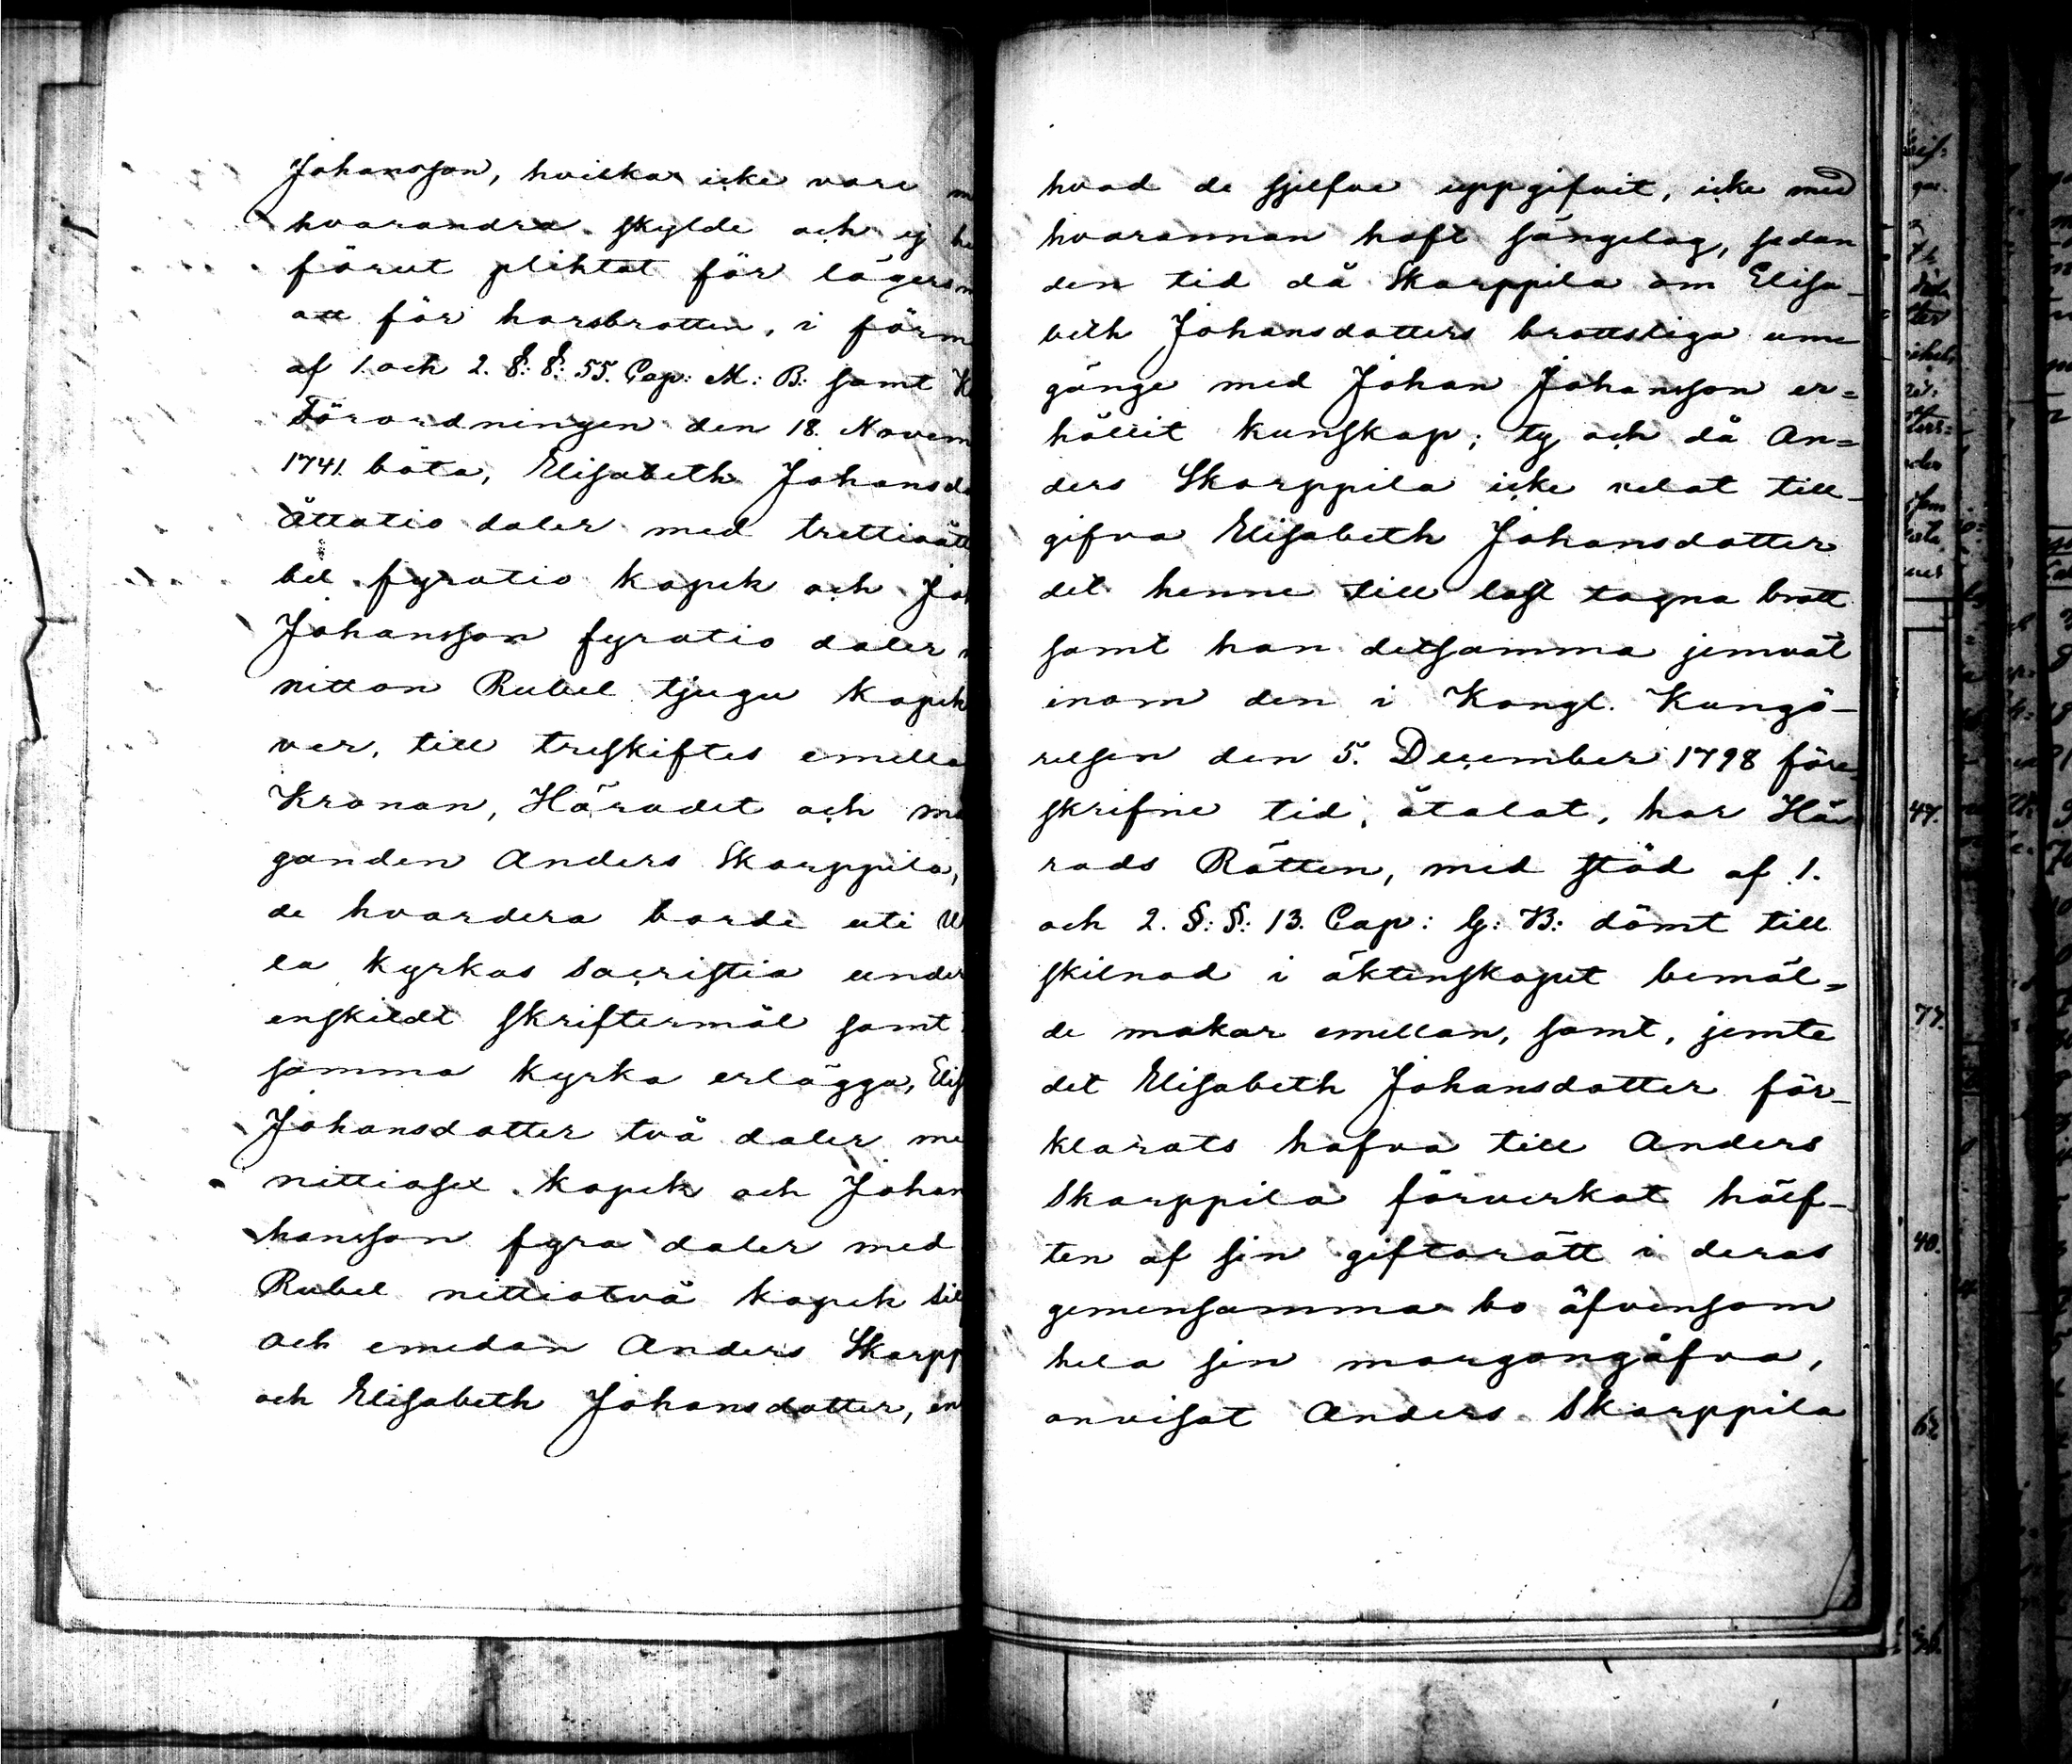 Johansson, hvilka icke vare m
hvarandra skylde och ej ha
förut plihtat för lägersm
att för horsbrotten, i förm
af 1. och 2. §: §: 55. Cap: M: B: samt K
Förordningen den 18. Novem
1741. böta, Elisabeth Johansdo
åttatio daler med trettioått
bel fyratio kopek och Joh
Johansson fyratio daler m
nitton Rubel tjugu kopek
ver, till treskiftes emella
Kronan, Häradet och må
ganden Anders Skarppila,
de hvardera borde uti Ul
la kyrkas Sacristia under
enskildt skriftermål samt
samma kyrka erlägga, Elis
Johansdotter två daler me
nittiosex kopek och Johan
hansson fyra daler med
Rubel nittiotvå kopek Sil
och emedan Anders Skarpp
och Elisabeth Johansdotter, en
hvad de sjelfve uppgifvit, icke med
hvarannan haft sängelag, sedan
den tid då Skarppila om Elisa-
beth Johansdotters brottsliga um-
gänge med Johan Johansson er=
hållit kunskap; ty och då An=
ders Skarppila icke velat till-
gifva Elisabeth Johansdotter
det henne till last tagna brott
samt han detsamma jemväl
inom den i Kongl. Kungö-
relsen den 5. December 1798 före-
skrifne tid, åtalat, har Hä-
rads Rätten, med stöd af 1.
och 2. §: §: 13. Cap: G: B: dömt till
skilnad i äktenskapet bemäl=
de makar emellan, samt, jemte
det Elisabeth Johansdotter för-
klarats hafva till Anders
Skarppila förverkat hälf-
ten af sin giftorätt i deras
gemensamma bo äfvensom
hela sin morgongåfva,
anvisat Anders Skarppila
47.
77.
40.
62